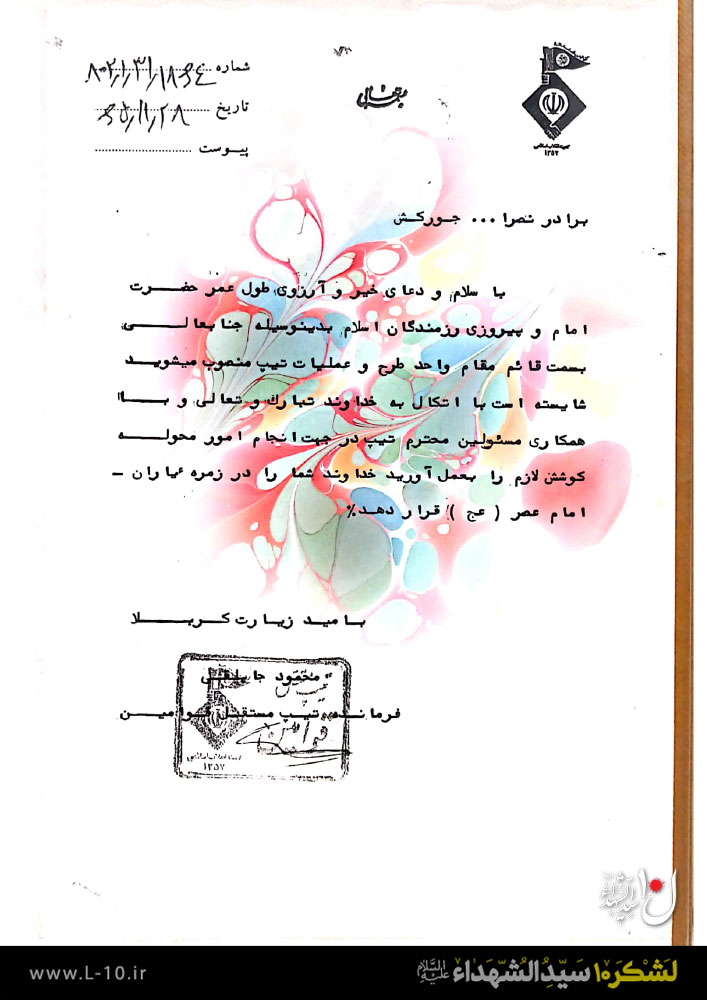 بسمه تعالی
کمیته انقلاب اسلامی
۱۳۵۷
شماره ۸۰۲/۱/۳۱/۱۸۶۴
تاریخ ۶۵/۱/۲۸
پیوست
برادر نصرا... جورکش
با سلام و دعای خیر و آرزوی طول عمر حضرت
امام و پیروزی رزمندگان اسلام بدینوسیله جنابعالی
بسمت قائم مقام واحد طرح و عملیات تیپ منصوب میشوید
شایسته است با اتکال به خداوند تبارک و تعالی و با
همکاری مسئولین محترم تیپ در جهت انجام امور محوله
کوشش لازم را بعمل آورید خداوند شما را در زمره یاران -
امام عصر ( عج ) قرار دهد%
بامید زیارت کربلا
محمود جاپلقی
فرمانده تیپ مستقل قوامین
تیپ
قوامین
کمیته انقلاب اسلامی
۱۳۵۷
www.L-10.ir
لشکر ۱۰ سیدالشهداء علیه‌السلام